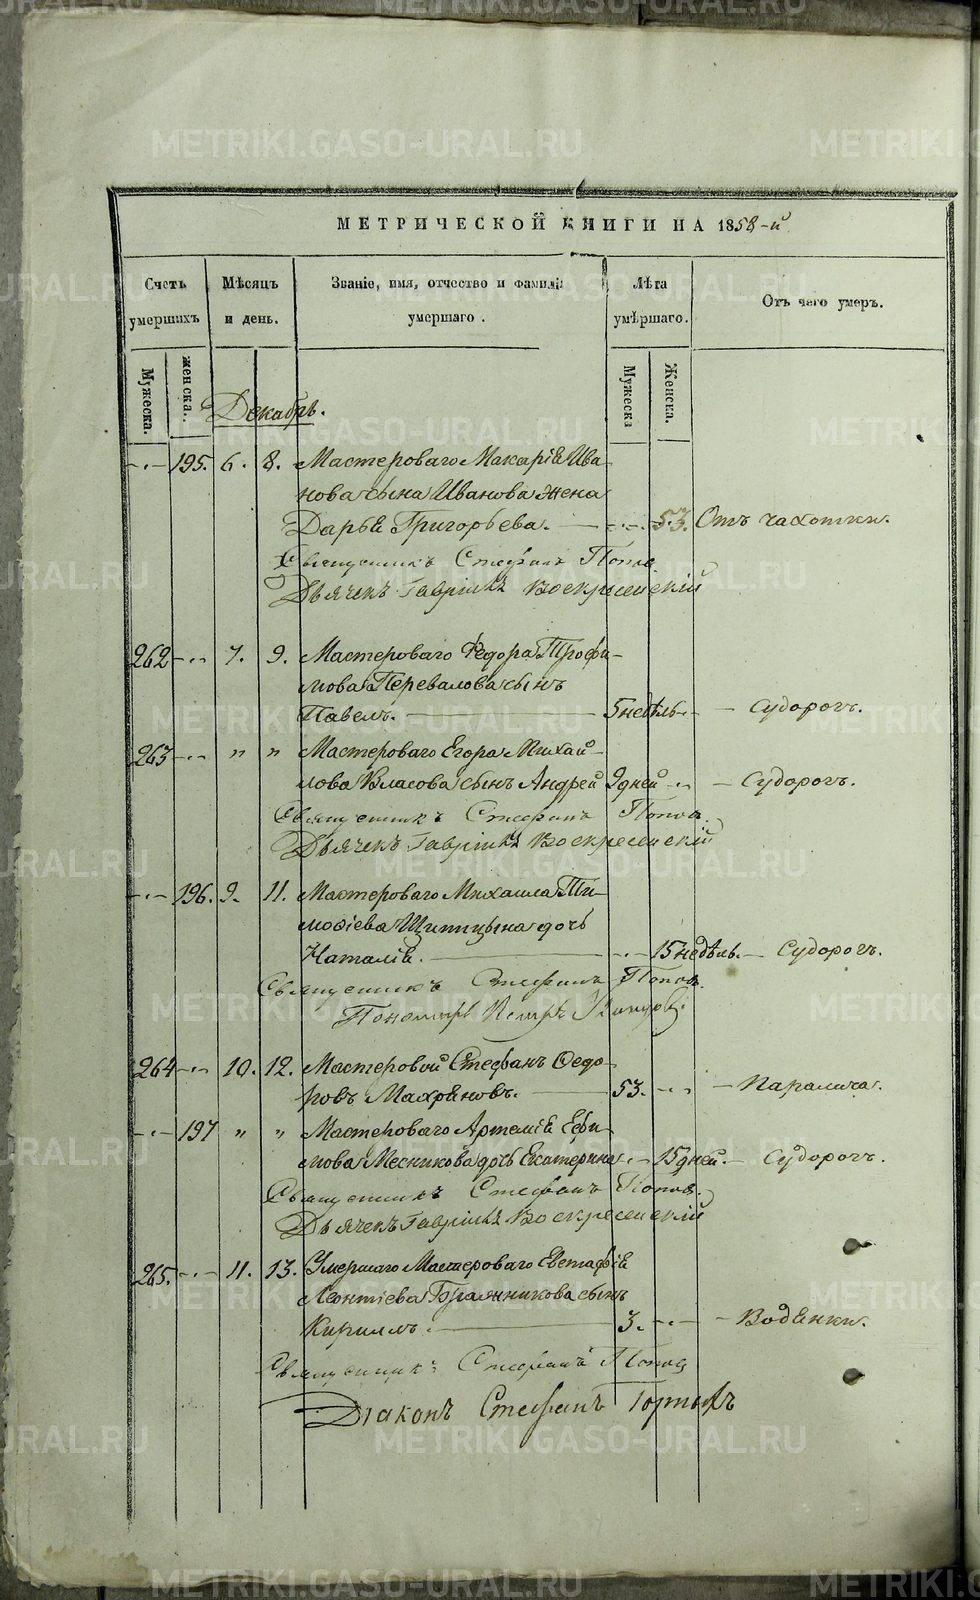 МЕТРИЧЕСКОЙ КНИГИ НА 1858-й
Счетъ умершихъ
Мѣсяцъ и день.
Званіе, имя, отчество и фамилія умершаго.
Лѣта умершаго.
Отъ чего умеръ.
Мужеска.
женска.
Мужеска
Женска.
Декабрь.
-·- 195. 6. 8. Мастероваго Макарія Ива-
нова сына Иванова жена
Дарья Григорьева. -·- 53. Отъ чахотки.
Священникъ Стефанъ Попов
Дьячекъ Гавріилъ Воскресенскій
262 -·- 7. 9. Мастероваго Ѳедора Трофи-
мова Перевалова сынъ
Павелъ. 5 недѣль. - Судорогъ.
263 -·- " " Мастероваго Егора Михай-
лова Власова сынъ Андрей 9 дней -·- - Судорогъ.
Священникъ Стефанъ Попов.
Дьячекъ Гавріилъ Воскресенскій
-·- 196. 9. 11. Мастероваго Михаила Ти-
моѳіева Щипицына дочь
Наталія. -·- 15 недѣль. - Судорогъ.
Священникъ Стефанъ Попов.
Пономарь Петръ
264 -·- 10. 12. Мастеровой Стефанъ Ѳедо-
ровъ Махряновъ. 53. -·- - Паралича.
-·- 197 " " Мастероваго Артемія Ефи-
мова Месникова дочь Екатерина -·- 15 дней. - Судорогъ.
Священникъ Стефанъ Попов.
Дьячекъ Гавріилъ Воскресенскій
265. -·- 11. 13. Умершаго Мастероваго Евстафія
Леонтіева Бражникова сынъ
Кириллъ. 3. -·- - Водянки.
Священникъ Стефанъ Попов
Діаконъ Стефанъ Горныхъ
METRIKI.GASO-URAL.RU